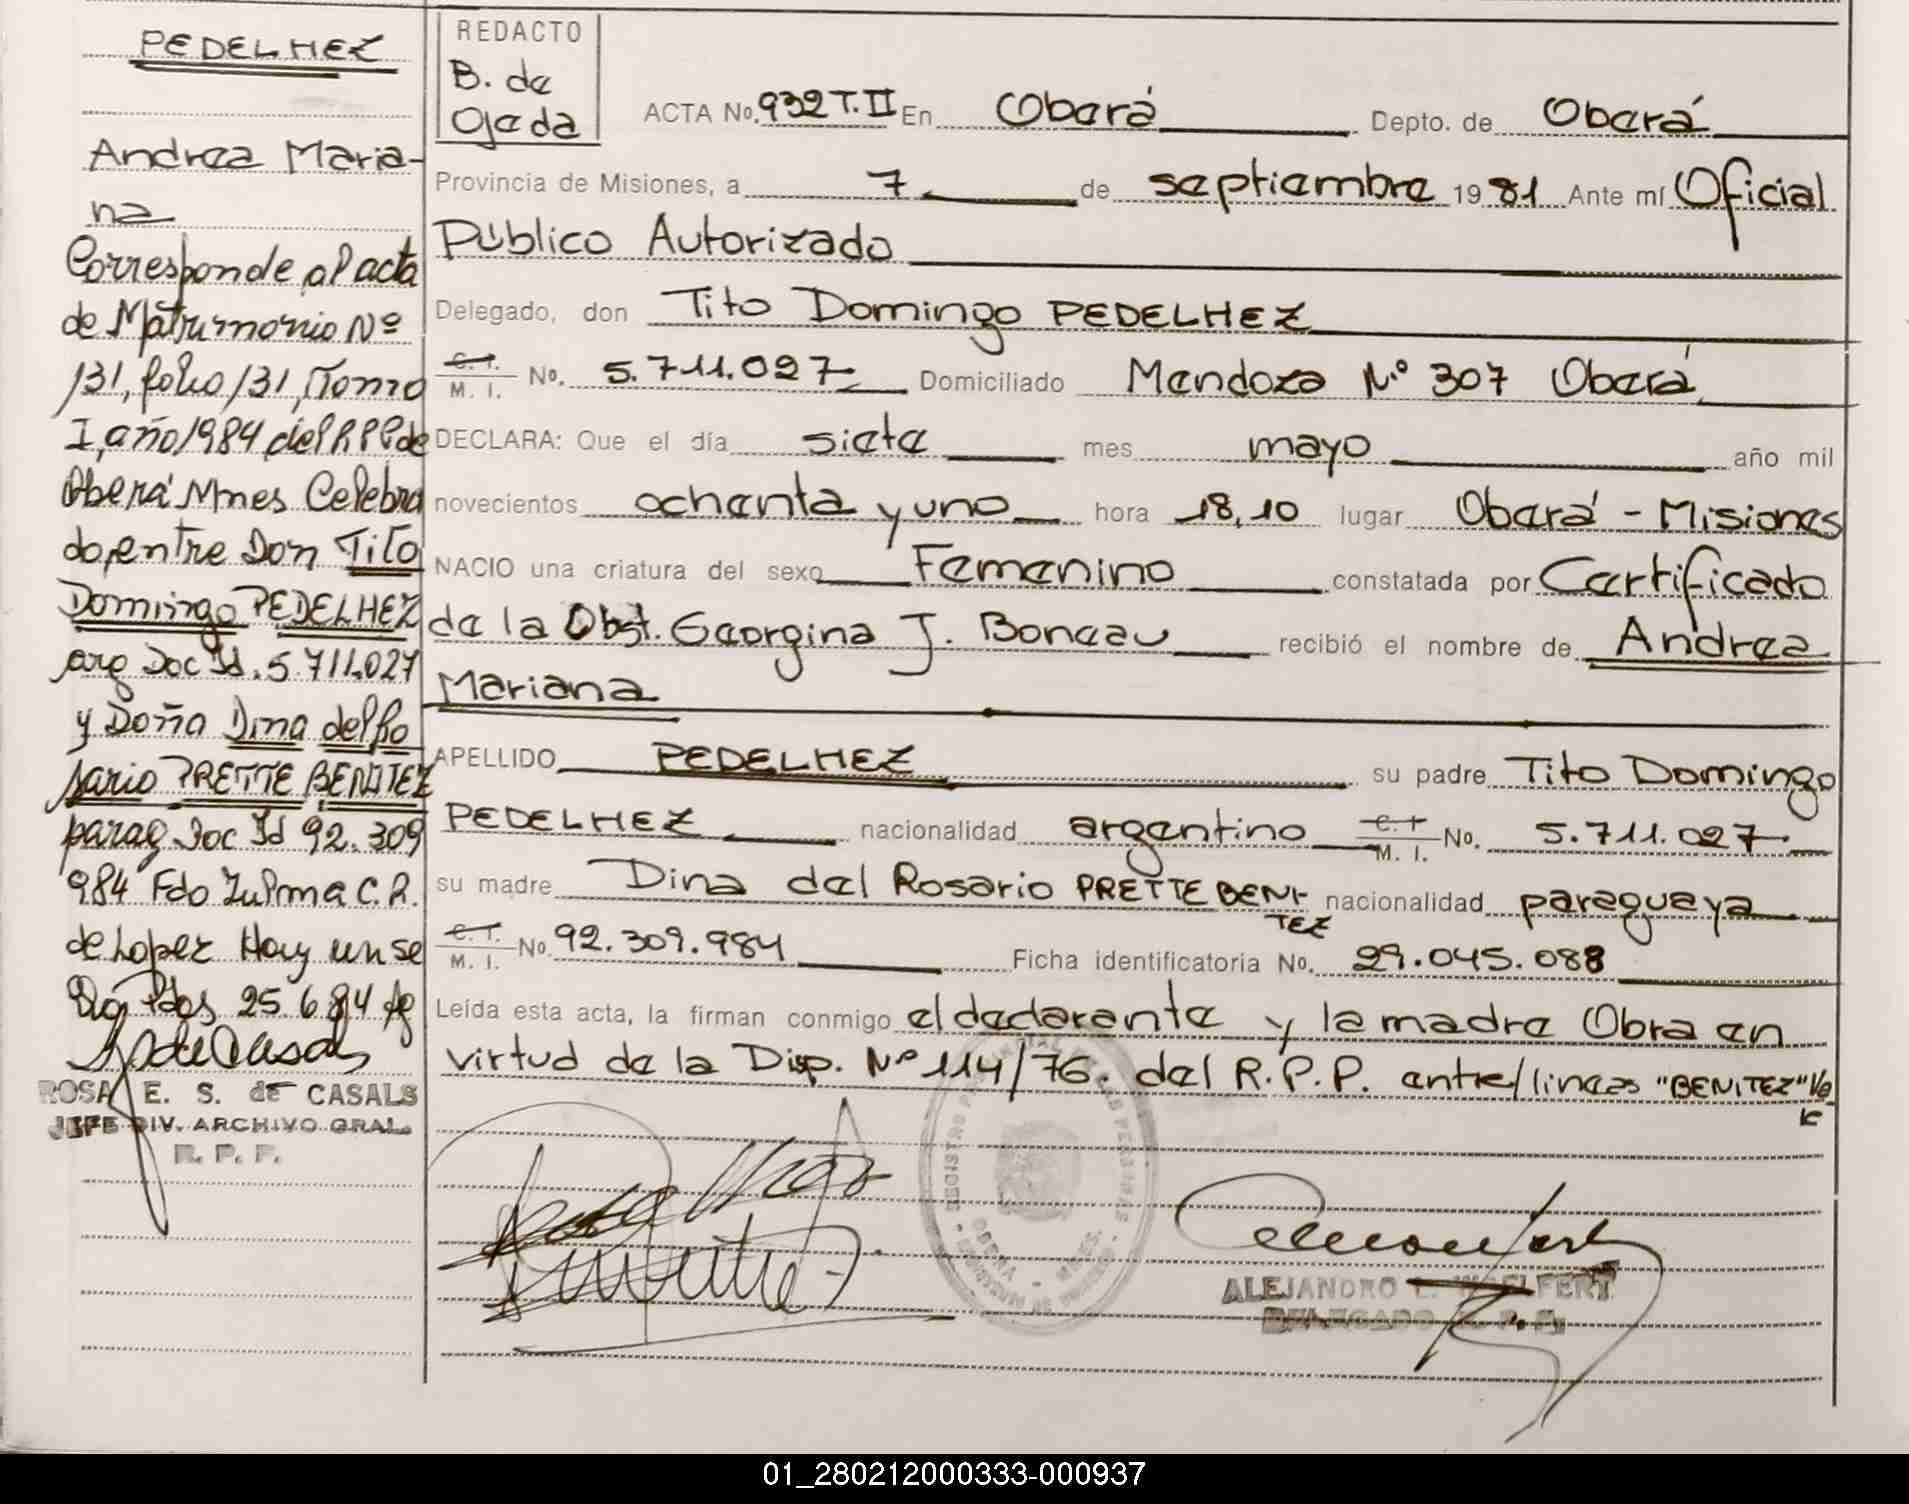 PEDELHEZ
Andrea Maria-
na
Corresponde al acta
de Matrimonio Nº
131, folio 131, Tomo
I, año 1984 del R.P.P de
Oberá Mnes Celebra
do, entre Don Tito
Domingo PEDELHEZ
arg Doc Id. 5.711.027
y Doña Dina del Ro
sario PRETTE BENITEZ
parag Doc Id 92.309
984 Fdo Zulma C.R.
de Lopez Hay un se
llo Pdos 25.6.84
ROSA E. S. de CASALS
JEFE DIV. ARCHIVO GRAL.
R. P. P.
REDACTO
B. de
Ojeda
ACTA No. 932 T. II En Oberá Depto. de Oberá
Provincia de Misiones, a 7 de septiembre 1981 Ante mí Oficial
Público Autorizado
Delegado, don Tito Domingo PEDELHEZ
C. I. M. I. No. 5.711.027 Domiciliado Mendoza N.º 307 Oberá
DECLARA: Que el día siete mes mayo año mil
novecientos ochenta y uno hora 18,10 lugar Oberá - Misiones
NACIO una criatura del sexo Femenino constatada por Certificado
de la Obst. Georgina J. Boneau recibió el nombre de Andrea
Mariana
APELLIDO PEDELHEZ su padre Tito Domingo
PEDELHEZ nacionalidad argentino C. I. M. I. No. 5.711.027
su madre Dina del Rosario PRETTE BENI-
TEZ nacionalidad paraguaya
C. I. M. I. No. 92.309.984 Ficha identificatoria No. 29.045.088
Leída esta acta, la firman conmigo el declarante y la madre Obra en
virtud de la Disp. Nº 114/76. del R.P.P. entre/lineas "BENITEZ" Va
le
REGISTRO PROVINCIAL DE LAS PERSONAS
OBERA - MNES.
ALEJANDRO L. WOELFERT
DELEGADO R. P. P.
01_280212000333-000937